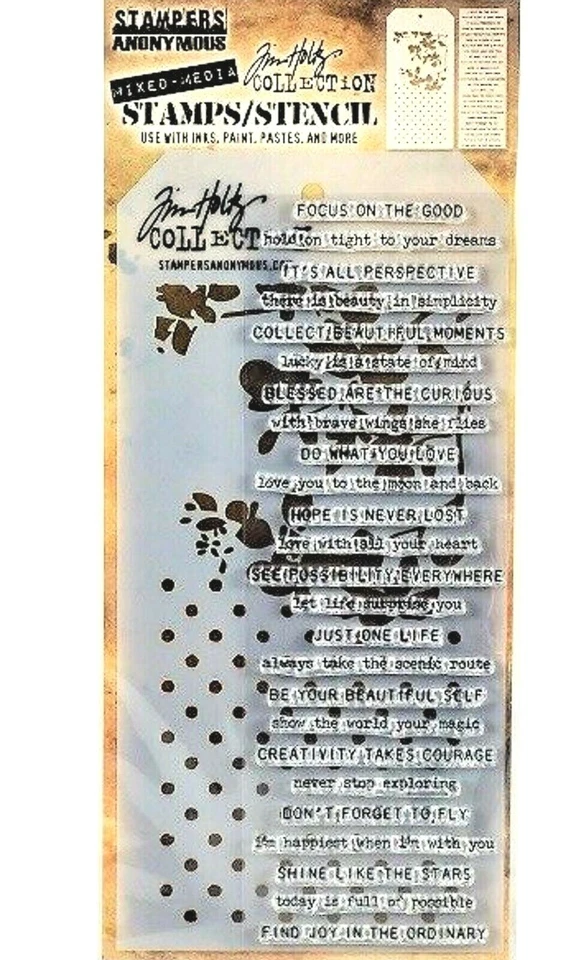 STAMPERS
ANONYMOUS
MIXED-MEDIA
Tim Holtz
COLLECTION
STAMPS/STENCIL
USE WITH INKS, PAINT, PASTES, AND MORE
Tim Holtz
COLLECT
STAMPERSANONYMOUS.C
FOCUS ON THE GOOD
hold on tight to your dreams
IT'S ALL PERSPECTIVE
there is beauty in simplicity
COLLECT BEAUTIFUL MOMENTS
lucky is a state of mind
BLESSED ARE THE CURIOUS
with brave wings she flies
DO WHAT YOU LOVE
love you to the moon and back
HOPE IS NEVER LOST
love with all your heart
SEE POSSIBILITY EVERYWHERE
let life surprise you
JUST ONE LIFE
always take the scenic route
BE YOUR BEAUTIFUL SELF
show the world your magic
CREATIVITY TAKES COURAGE
never stop exploring
DON'T FORGET TO FLY
i'm happiest when i'm with you
SHINE LIKE THE STARS
today is full of possible
FIND JOY IN THE ORDINARY